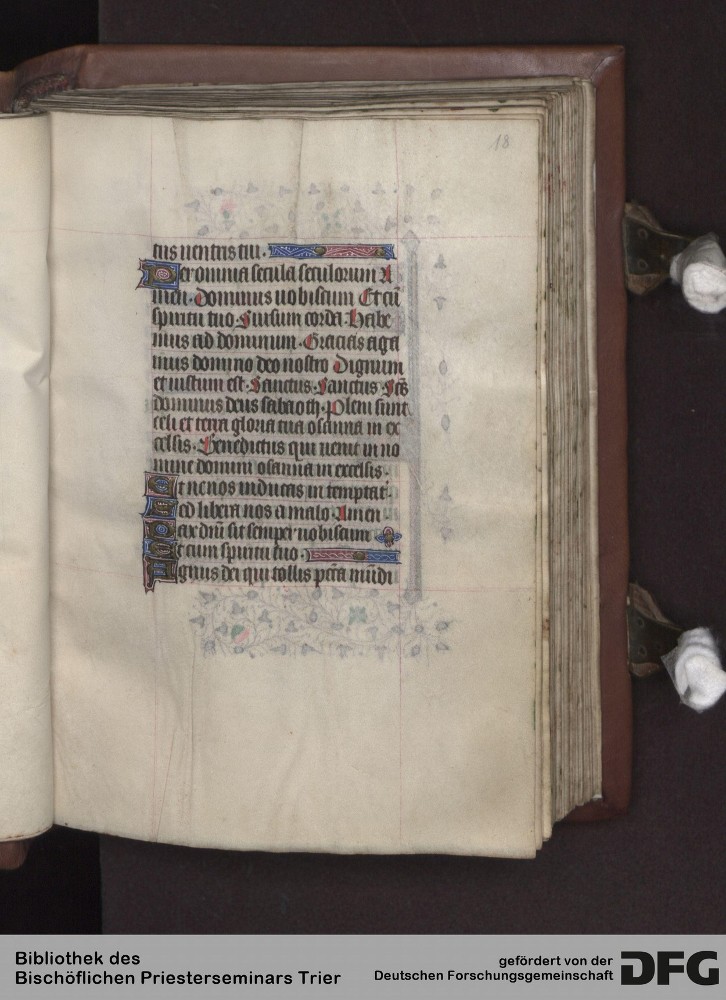 18
tus uentris tui.
Per omnia secula seculorum A
men. Dominus uobiscum Et cū
spiritu tuo. Sursum corda. Habe
mus ad dominum. Gracias aga
mus domino deo nostro Dignum
et iustum est. Sanctus. Sanctus. Scs̄
dominus deus sabaoth. Pleni sunt
celi et terra gloria tua osanna in ex
celsis. Benedictus qui uenit in no
mine domini osanna in excelsis.
Et ne nos inducas in temptat.
Sed libera nos a malo. Amen
Pax dn̄i sit semper uobiscum
Et cum spiritu tuo.
Agnus dei qui tollis pctā mūdi
Bibliothek des
Bischöflichen Priesterseminars Trier
gefördert von der
Deutschen Forschungsgemeinschaft
DFG